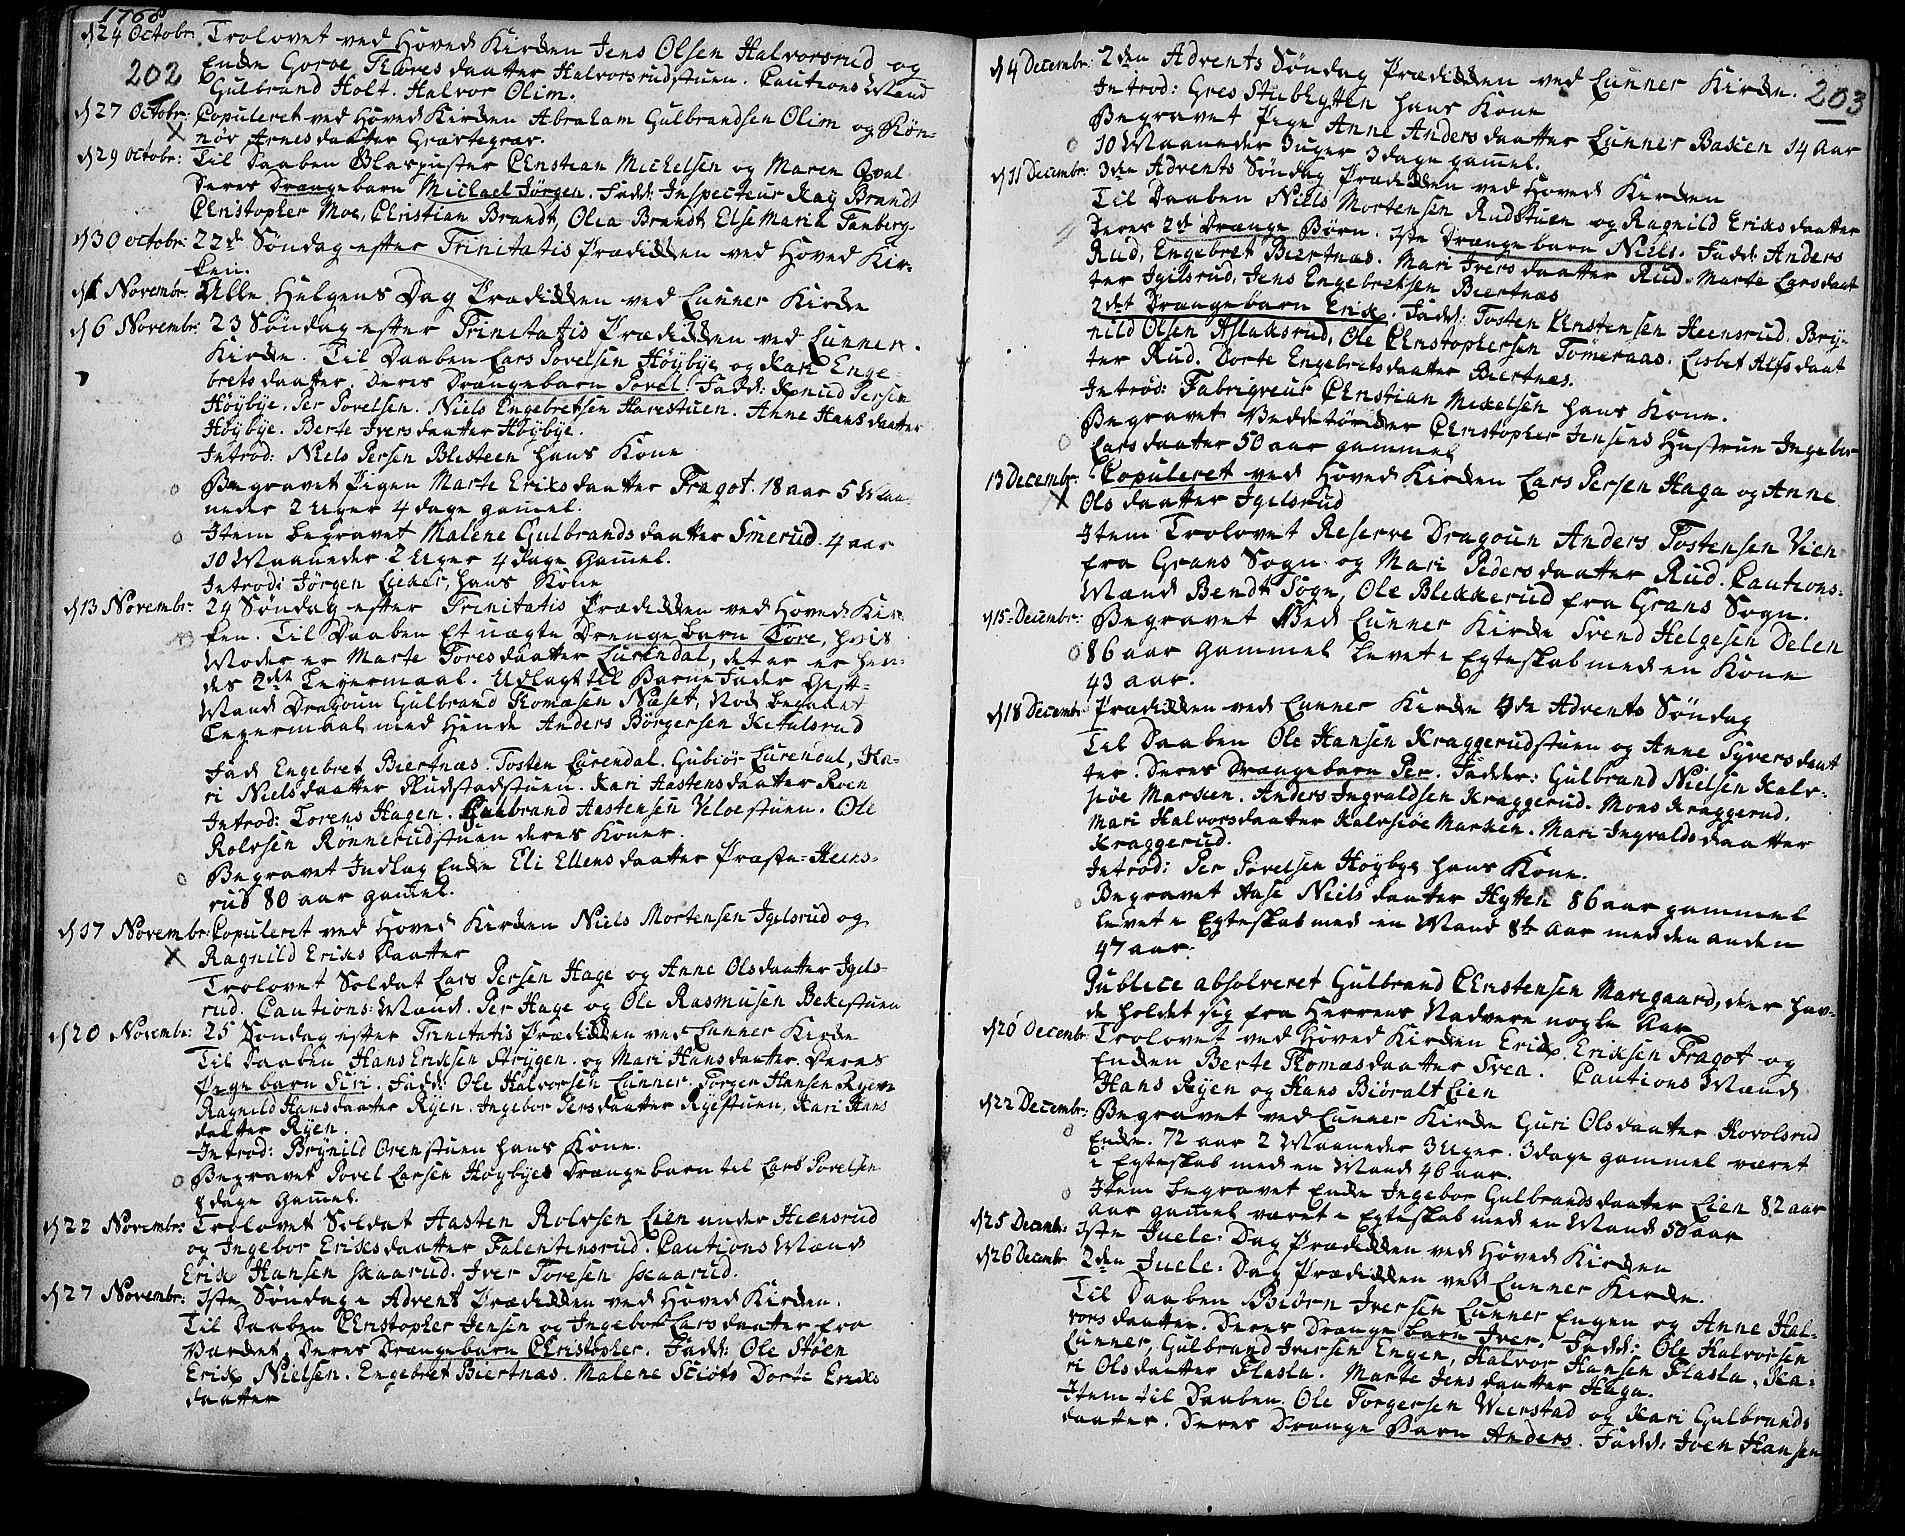 1768
202
d 24 Octobr: Trolovet ved Hoved Kirken Jens Olsen Halvorsrud og
Enke Goroe Tharesdaatter Halvorsrudstuen. Cautions Mænd
Gulbrand Holt. Halvor Olim.
d 27 Octobr: Copuleret ved Hoved Kirken Abraham Gulbrandsen Olim og Røn-
nøv Arnesdaatter Græstegrav.
d 29 octobr: Til Daaben Glaspuster Christian Michelsen og Maren Qval
Deres Drængebarn Michael Jørgen. Fadd: Inspecteur Kay Brandt
Christopher Moe, Christian Brandt, Olea Brandt, Else Maria Tanberg.
d 30 octobr: 22de Søndag efter Trinitatis Prædikken ved Hoved Kir-
ken.
d 1 Novembr Alle Helgens Dag Prædikken ved Lunner Kirke
d 6 Novembr: 23 Søndag efter Trinitatis Prædikken ved Lunner
Kirke. Til Daaben Lars Povelsen Høybye og Kari Enge-
bretsdaatter. Deres Drængebarn Povel. Fadd: Knud Persen
Høybye. Per Povelsen. Niels Engebretsen Harestuen. Anne Hansdaatter
Høybye. Berte Iversdaatter Høybye.
Introd: Niels Persen Blesteen hans Kone
Begravet Pigen Marte Eriksdaatter Fragot. 18 aar 5 Maa-
neder 2 Uger 4 dage gamel.
Item begravet Malene Gulbrandsdaatter Smerud. 4 aar
10 Maaneder 2 Uger 4 dage Gamel.
Introd: Jørgen hans Kone
d 13 Novembr: 24 Søndag efter Trinitatis Prædikken ved Hoved Kir-
ken. Til Daaben Et uægte Drengebarn Tore, hvis
Moder er Marte Toresdaatter Lurendal, det er er hen-
des 2det Leyermaal. Udlagt til Barne Fader Gift-
Mand Dragoun Gulbrand Thomasen Næset, Nok begaaet
Leyermaal med Hende Anders Børgersen Ketulsrud
Fad Engebret Biertnæs. Tosten Lurendal. Gubiør Lurendal, Ka-
ri Nielsdaatter Rudstadstuen. Kari Hastensdaatter Roen
Introd: Torens Hagen. Gulbrand Aastensen Veloestuen. Ole
Rolvsen Rønnerudstuen deres Koner.
Begravet Indlag Enke Eli Ellensdaatter Præste-Heens-
rud 80 aar gamel.
d 17 Novembr: Copuleret ved Hoved Kirken Niels Mortensen Igelsrud og
Ragnild Eriks Daatter
Trolovet Soldat Lars Persen Hage og Anne Olsdaatter Igels-
rud. Cautions-Mænd. Per Hage og Ole Rasmusen Bekestuen
d 20 Novembr: 25 Søndag efter Trinitatis Prædikken ved Lunner Kirke
Til Daaben Hans Eriksen Strygen. og Mari Hansdaatter. Deres
Pigebarn Siri. Fadd: Ole Halvorsen Lunner. Torger Hansen Ryen
Ragnild Hansdaatter Ryen. Ingebor Persdaatter Ryestuen, Kari Hans
daatter Ryen.
Introd: Brynild Orenstuen hans Kone.
Begravet Povel Larsen Høybyes Drængebarn til Lars Povelsen
8 dage Gamel.
d 22 Novembr Trolovet Soldat Aasten Rolvsen Lien under Heensrud
og Ingebor Eriksdaatter Falentinsrud. Cautions Mænd
Erik Hansen Skaarud. Iver Toresen Skaarud.
d 27 Novembr: 1ste Søndag i Advent Prædikken ved Hoved Kirken.
Til Daaben Christopher Jensen og Ingebor Larsdaatter fra
Værket. Deres Drængebarn Christopher. Fadd: Ole Støen
Erik Nielsen. Engebret Biertnæs. Malene Skiøts Dorte Eriks
daatter
203
d 4 Decembr: 2den Advents Søndag Prædikken ved Lunner Kirke.
Introd: Gres Stubhytten hans Kone
Begravet Pige Anne Andersdaatter Lunner Bakken 14 aar
10 Maaneder 3 uger 3 dage gamel.
d 11 Decembr: 3die Advents Søndag Prædikken ved Hoved Kirken
Til Daaben Niels Mortensen Rudstuen og Ragnild Eriksdaatter
Deres 2de Drænge Børn. 1ste Drængebarn Niels. Fadd: Anders
Rud, Engebret Biertnæs. Mari Iversdaatter Rud. Marte Larsdaat
ter Igilsrud, Jens Engebretsen Biertnæs
2det Drængebarn Erik. Fadd: Tosten Christensen Heensrud. Bry-
nild Olsen Aslaksrud, Ole Christophersen Tømeraas. Lisbet Alfsdaat
ter Rud. Dorte Engebretsdaatter Biertnæs.
Introd: Fabriqveur Christian Mikelsen hans Kone.
Begravet Vedtørker Christopher Jensens Hustrue Ingebor
Larsdaatter 50 aar gammel
13 Decembr: Copuleret ved Hoved Kirken Lars Persen Haga og Anne
Olsdaatter Igelsrud
Item Trolovet Reserve Dragoun Anders Tostensen Vien
fra Grans Sogn og Mari Pedersdaatter Rud. Cautions-
Mænd Bendt Sogn, Ole Blekkerud fra Grans Sogn.
d 15 Decembr: Begravet Ved Lunner Kirke Svend Helgesen Delen
86 aar gammel levet i Egteskab med en Kone
43 aar.
d 18 Decembr Prædikken ved Lunner Kirke 4de Advents Søndag
Til Daaben Ole Hansen Kraggerudstuen og Anne Syversdaat
ter. Deres Drængebarn Per. Fadder: Gulbrand Nielsen Kalv-
siøe Marken. Anders Ingvaldsen Kraggerud. Mons Kraggerud.
Mari Halvorsdaatter Kalvsiøe Marken. Mari Ingvaldsdaatter
Kraggerud.
Introd: Per Povelsen Høybye hans Kone.
Begravet Aase Nielsdaatter Hytten 86 aar gammel
levet i Egteskab med en Mand 8½ Aar med den anden
47 aar.
Publice absolveret Gulbrand Christensen Maregaard, der hav-
de holdet sig fra Herrens Nadvere nogle Aar
d 20 Decembr Trolovet ved Hoved Kirken Erik Eriksen Fragot og
Enken Berte Thomasdaatter Svea. Cautions Mænd
Hans Ryen og Hans Biøralt Lien
d 22 Decembr: Begravet ved Lunner Kirke Guri Olsdaatter Kovolsrud
Enke. 72 aar 2 Maaneder 3 Uger. 3 dage gammel været
i Egteskab med en Mand 46 aar.
Item begravet Enke Ingebor Gulbrandsdaatter Lien 82 aar
aar gamel været i Egteskab med en Mand 50 aar
d 25 Decembr: 1ste Juele-Dag Prædikken ved Hoved Kirken
d 26 Decembr 2den Juele-Dag Prædikken ved Lunner Kirke.
Til Daaben Biørn Iversen Lunner Engen og Anne Hal-
vorsdaatter. Deres Drænge barn Iver. Fadd: Ole Halvorsen
Lunner, Gulbrand Iversen Engen, Halvor Hansen Flasla, Ka-
ri Olsdaatter Flasla. Marte Jensdaatter Haga.
Item til Daaben Ole Torgersen Wierstad og Kari Gulbrands
daatter. Deres Drænge Barn Anders. Fadd: Joen Hansen